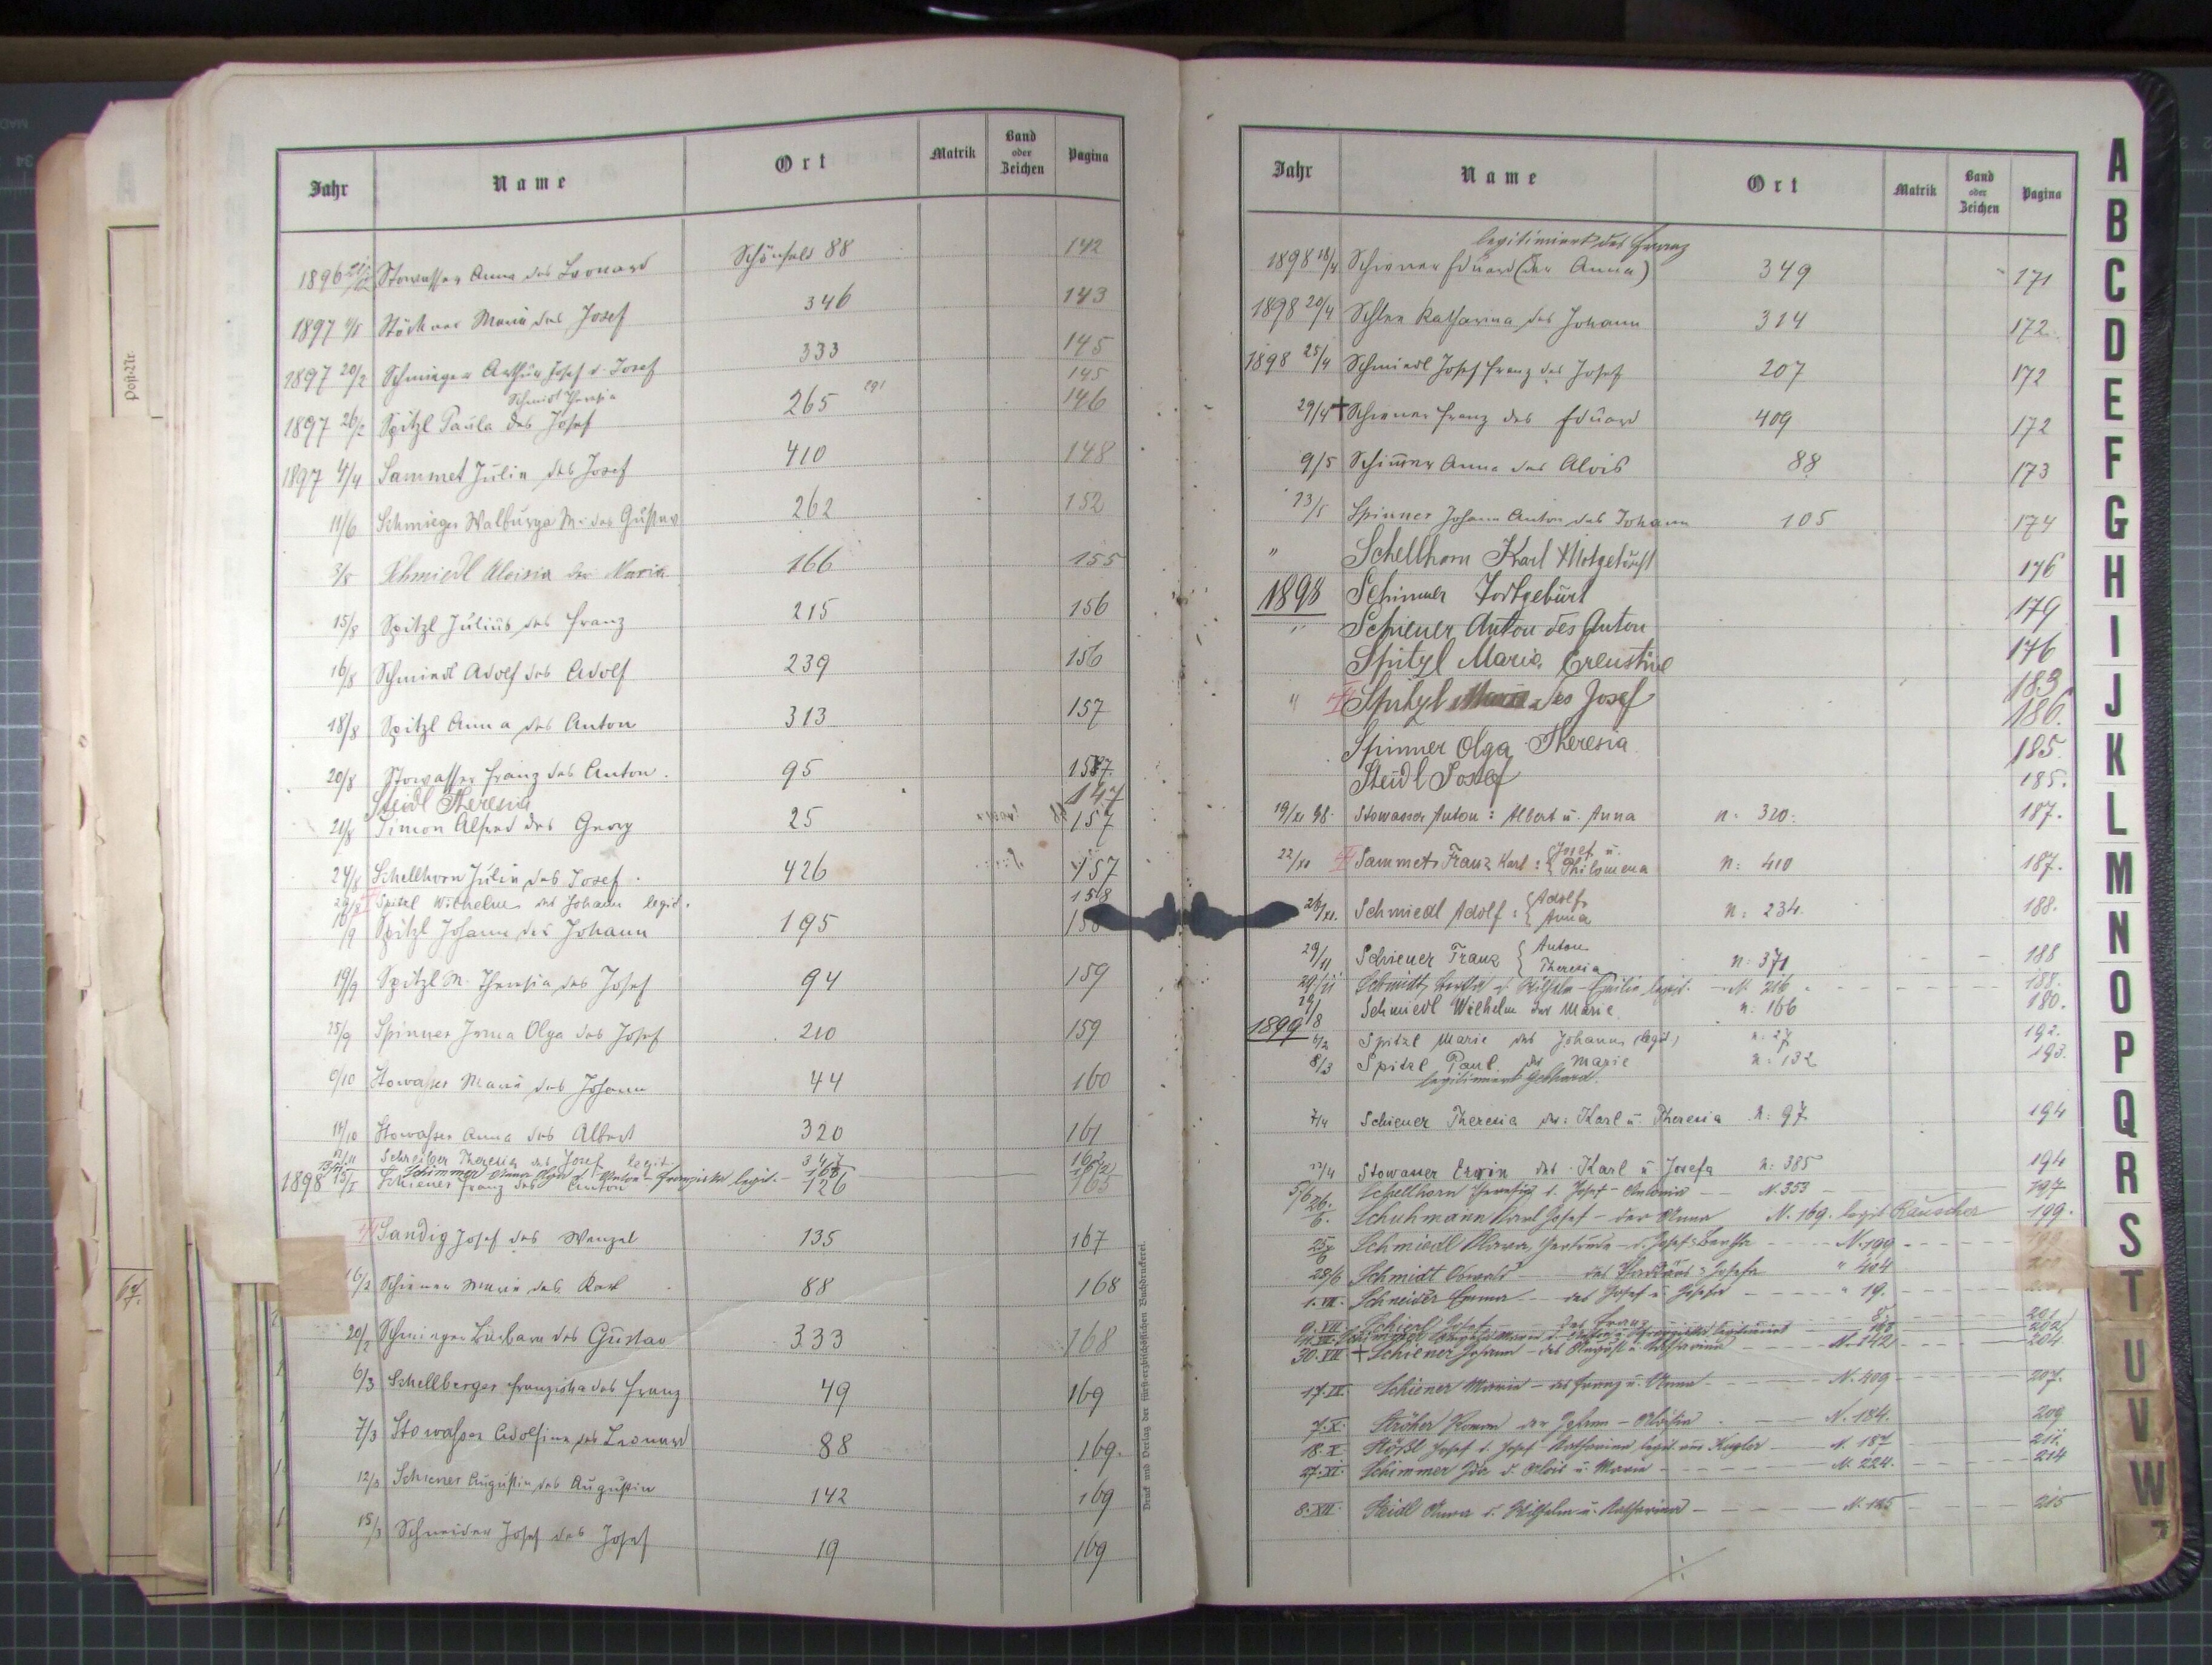 Jahr Name Ort Matrik Band oder Zeichen Pagina
1896 Stowasser Anna des Leonard Schönfeld 88 142
1897 Stöckner Maria des Josef 346 143
1897 20/2 Schmieger Arthur Josef d. Josef 333 145
Schmidt Theresia 191 145
1897 26/2 Spitzl Paula des Josef 265 146
1897 4/4 Sammet Julia des Josef 410 148
11/6 Schmieger Walburga M. des Gustav 262 152
3/8 Schmiedl Aloisia der Maria 166 155
15/8 Spitzl Julius des Franz 215 156
16/8 Schmiedl Adolf des Adolf 239 156
18/8 Spitzl Anna des Anton 313 157
20/8 Stowasser Franz des Anton. 95 157.
Steidl Theresia 147
21/8 Simon Alfred des Georg 25 157
24/8 Schellhorn Julia des Josef. 426 157
29/8 Spitzl Wilhelm des Johann legit. 158
10/9 Spitzl Johann des Johann 195 158
19/9 Spitzl M. Theresia des Josef 94 159
25/9 Spinner Irma Olga des Josef 210 159
6/10 Stowasser Maria des Johann 44 160
14/10 Stowasser Anna des Albert 320 161
12/11 Schreiber Theresia des Josef legit. 347 162
Schimmer Anna Olga d. Anton - Franziska legit. 168
1898 15/I Schiener Franz des Anton 126 165
Sandig Josef des Wenzel 135 167
16/2 Schiener Maria des Karl 88 168
20/2 Schmieger Barbara des Gustav 333 168
6/3 Schellberger Franziska des Franz 49 169
7/3 Stowasser Adolfine des Leonard 88 169.
12/3 Schiener Augustin des Augustin 142 169
15/3 Schneider Josef des Josef 19 169
Druck und Verlag der fürst-erzbischöflichen Buchdruckerei.
Post-Nr.
Jahr Name Ort Matrik Band oder Zeichen Pagina
legitimiert des Franz
1898 18/4 Schiener Eduard (der Anna) 349 171
1898 20/4 Schlee Katharina des Johann 314 172
1898 25/4 Schmiedl Josef Franz des Josef 207 172
29/4 † Schiener Franz des Eduard 409 172
9/5 Schimmer Anna des Alois 88 173
13/5 Spinner Johann Anton des Johann 105 174
" Schellhorn Karl Notgetauft 176
1898 Schimmer Totgeburt 179
" Schiener Anton des Anton 176
Spitzl Maria Ernestine 183
" Spitzl des Josef 186.
Spinner Olga Theresia 185.
Steidl Josef 185.
19/XI 98. Stowasser Anton: Albert u. Anna n: 320. 187.
22/XI Sammet Franz Karl: { Josef u. Philomena n: 410 187.
26/XI. Schmiedl Adolf: { Adolf Anna n: 234. 188.
29/11 Schiener Franz { Anton Theresia n: 371 188
29/11 Schmidt Bertha d. Wilhelm - Emilie legit. N 216 188.
Schmiedl Wilhelm der Marie n: 166 180.
1899 6/2 Spitzl Marie des Johann (legit.) n: 27 192.
8/3 Spitzl Paul der Marie n: 132 193.
legitimiert Gebhard.
7/4 Schiener Theresia des: Karl u. Theresia n: 97 194
22/4 Stowasser Erwin des Karl u. Josefa n: 385 194
5/6 Schellhorn Theresia d. Josef - Antonia N. 353 197
26./6. Schuhmann Karl Josef - der Anna N. 169. legit Rauscher 199.
Schmiedl Klara Gertrude - d. Josef - Bertha N. 199
28/6 Schmidt Oswald des Josefa " 404
1.VII. Schneider Emma des Josef u. Josefa " 19.
9.VII Josef des Franz 201
Schimmer legitimiert 202
30.VII † Schiener Johann - des August u. Katharina N. 142 204
17.IX. Schiener Maria - des Franz u. Anna N. 409 207.
7.X. Ströher Roman der Aloisia N. 184. 209
18.X. Stößl Josef d. Josef Katharina legit. Kugler N. 187 211.
27.XI. Schimmer Ida d. Alois u. Maria N. 224. 214
8.XII. Steidl Anna d. Wilhelm u. Katharina N. 125 215
A
B
C
D
E
F
G
H
I
J
K
L
M
N
O
P
Q
R
S
T
U
V
W